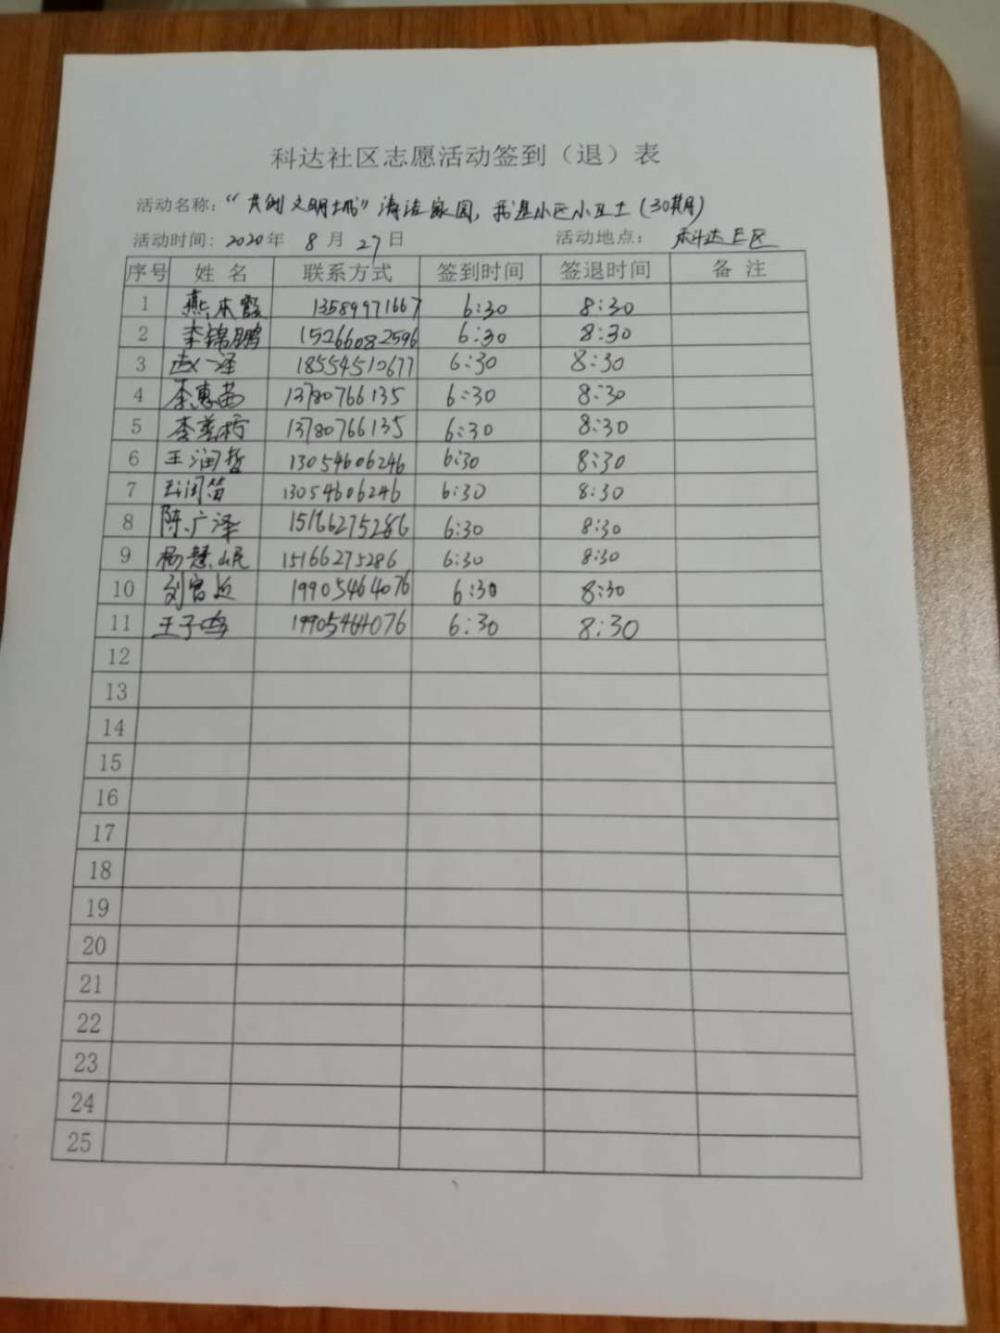 科达社区志愿活动签到（退）表
活动名称：“共创文明城”清洁家园，我是小区小卫士（30期）
活动时间：2020年 8月27日 活动地点：科达E区
序号 姓名 联系方式 签到时间 签退时间 备注
1 燕本霞 13589971667 6:30 8:30
2 李锦鹏 15266082596 6:30 8:30
3 赵一泽 18554512677 6:30 8:30
4 李惠茜 13780766135 6:30 8:30
5 李 13780766135 6:30 8:30
6 王润哲 13054606246 6:30 8:30
7 王润笛 13054606246 6:30 8:30
8 陈广泽 15166275286 6:30 8:30
9 杨慧岷 15166275286 6:30 8:30
10 刘 19905464076 6:30 8:30
11 王子鸣 19905464076 6:30 8:30
12
13
14
15
16
17
18
19
20
21
22
23
24
25